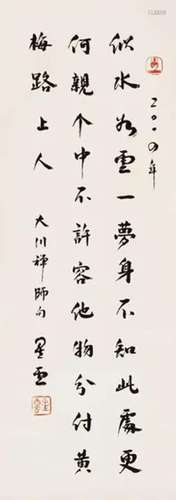 二〇〇四年
似水如雲一夢身不知此處更
何親个中不許容他物分付黃
梅路上人
大川禪師句
星雲